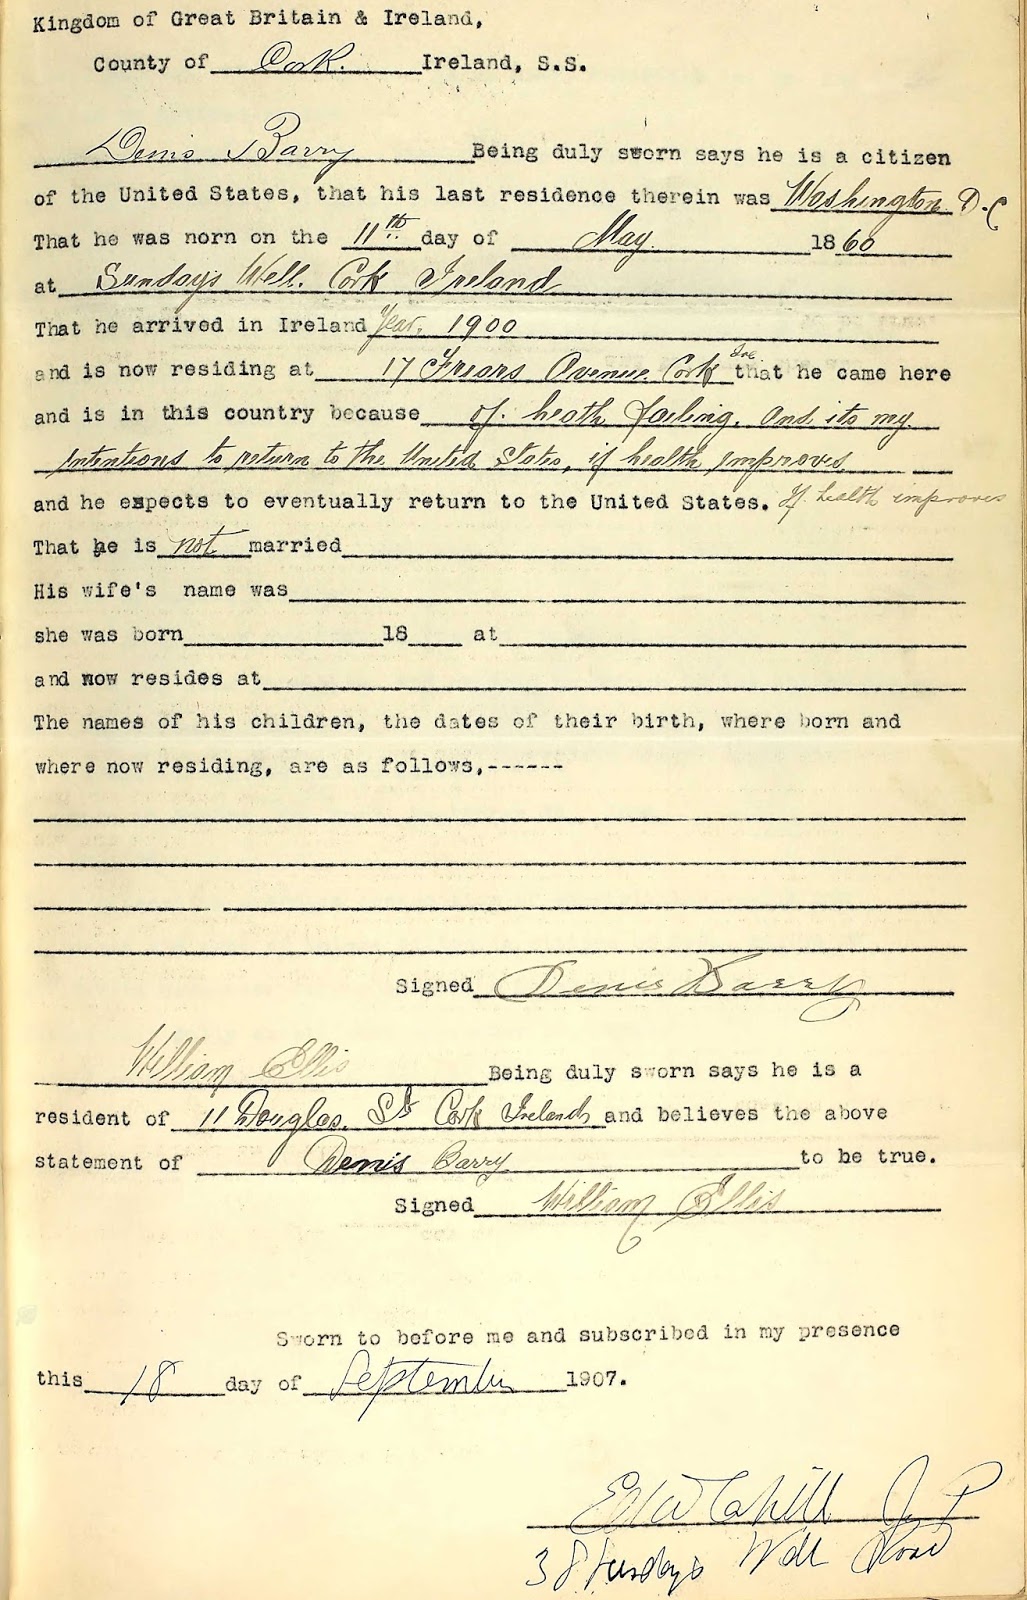 Kingdom of Great Britain & Ireland,
County of Cork. Ireland, S.S.
Denis Barry Being duly sworn says he is a citizen
of the United States, that his last residence therein was Washington D.C
That he was norn on the 11th day of May. 1860
at Sunday's Well. Cork Ireland
That he arrived in Ireland Year, 1900
and is now residing at 17 Friars Avenue. Cork Ire that he came here
and is in this country because of heath failing. And its my
intentions to return to the United States, if health improves
and he expects to eventually return to the United States. If health improves
That he is not married
His wife's name was
she was born 18 at
and now resides at
The names of his children, the dates of their birth, where born and
where now residing, are as follows,------
Signed Denis Barry
William Ellis Being duly sworn says he is a
resident of 11 Douglas. St Cork Ireland and believes the above
statement of Denis Barry to be true.
Signed William Ellis
Sworn to before me and subscribed in my presence
this 18 day of September 1907.
Cahill J P
Well Road